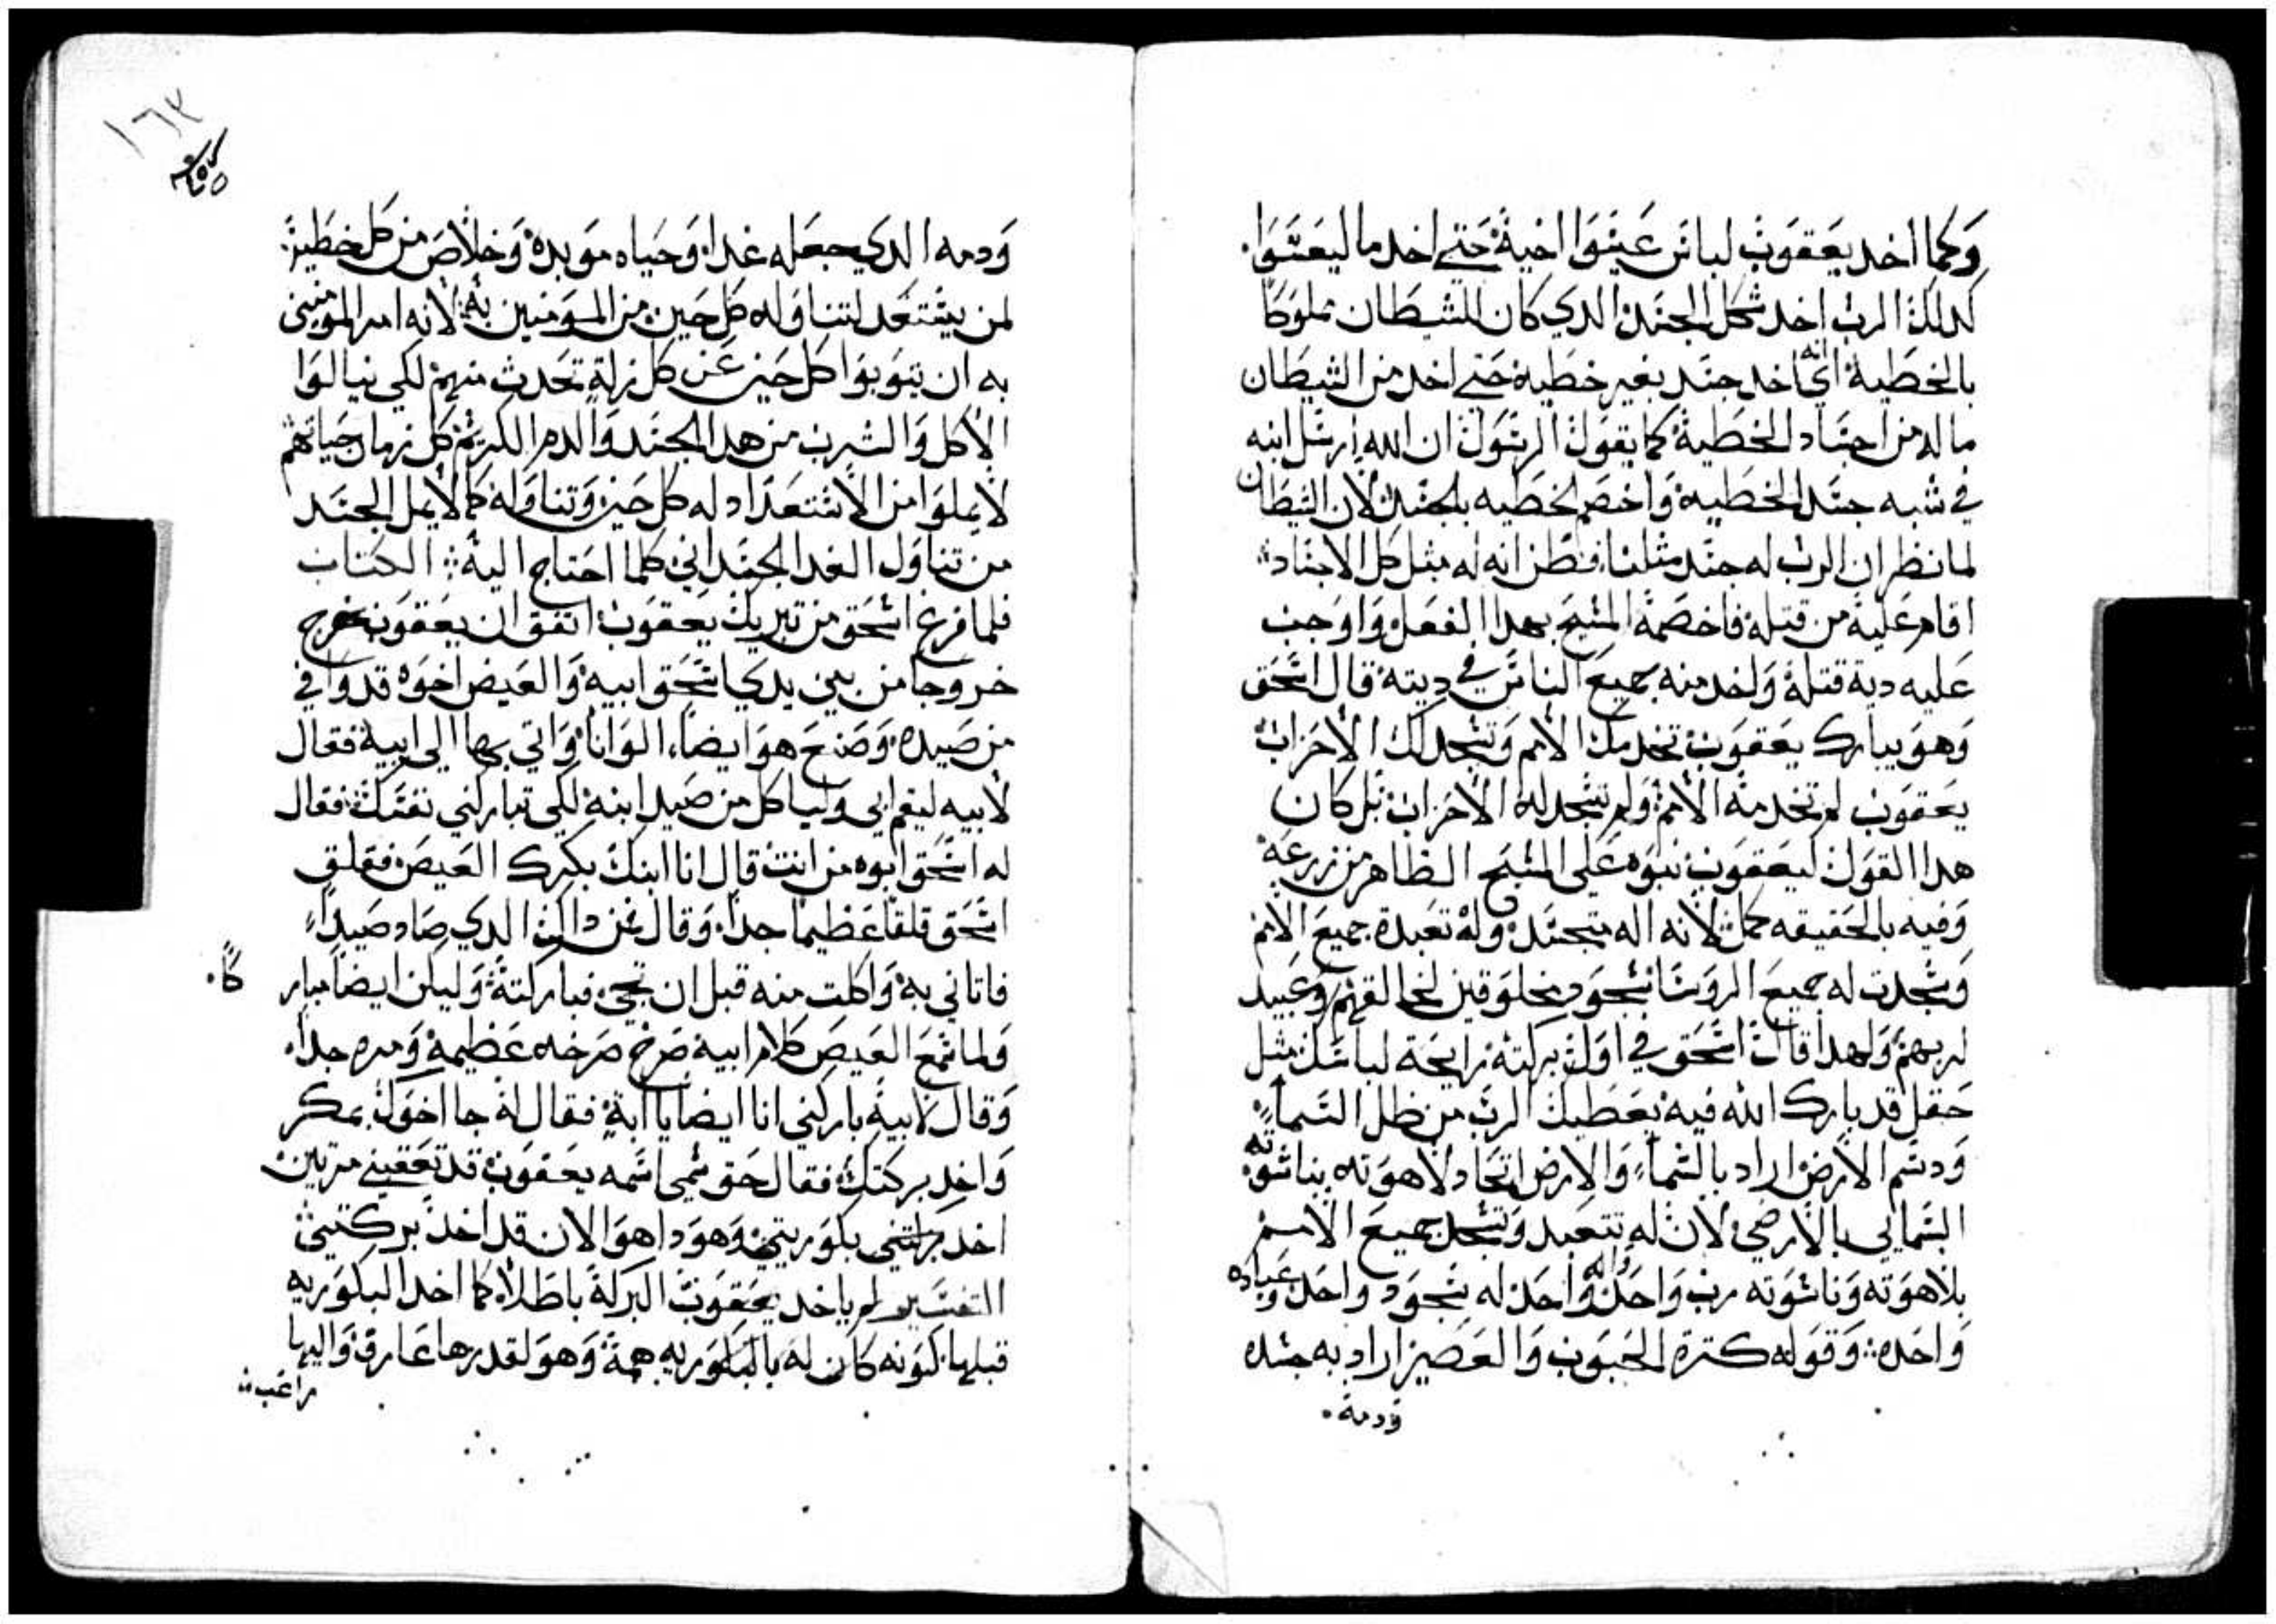 وَكما اخد يعَقوَبَ لباسَ عَيسَوَا اخيهَ حَتي اخد ما ليعَسَوَا.
كدلك الرب اخد شكل الجسَد الدي كان للشيطَان مملوَكاً
بالخطَية اي انه اخد جسَد بغير خطَيه حَتي اخد من الشيطَان
ماله من اجسَاد الخطَية كما يقوَل الرسَوَل ان الله ارسَل ابنه
في شبه جسَد الخطَيه وَاخصَم الخطَيه بالجسَد لان الشيطَان
لما نظر ان الرب له جسَد مثلنا فظن انه له مثل كل الاجسَاد
اقام عَليهَ من قتله فاخصَمهَ المسَيحَ بهدا الفعَل وَاوَجب
عَليه دية قتلهَ وَاخد منه جميعَ الناسَ في ديته قال اسَحَق
وَهوَ يبارك يعَقوَب تخدمك الامم وَتسَجد لك الاحَزاب
يعَقوَب لم تخدمهَ الامم وَلم تسَجد له الاحَزاب بَل كان
هدا القوَل ليعَقوَب نبوَه عَلي المسَيح الظاهر من زرعَهَ
وَفيه بالحَقيقه كمل لانه اله متجسَد وله تعَبدة جميعَ الامم
وَسَجدت له جميعَ الروَسَا سَجوَد مخلوَقين لخالقهم وَعَبيد
لربهم وَلهدا قال اسَحَق في اوَل بركته رايحَة لباسَك مثل
حَقل قد بارك الله فيه يعَطَيك الرب من طَل السَما
وَدسَم الارضَ اراد بالسَما وَالارض اتحَاد لاهوَته بناسَوَته
السَمايي بالارضَي لان له تتعَبد وَتسَجد جميعَ الامم
بلاهوَته وَناسَوَته رب وَاحَد وَاله وَاحَد له سَجوَد واحَد وعَباده
وَاحَده وَقوَله كترة الحَبوَب وَالعَصَير اراد به جسَده
وَدمهَ
١٦٣
وَدمه الدي جعَله غدا وَحَياه موَبده وَخلاصَ من كل خطَيه
لمن يسَتعَد لتناوَله كل حَين من الموَمنين به لانه امر الموَمنين
به ان يتوَبوَا كل حَين عَن كل زلة تحَدث منهم لكي ينالوَا
الاكل وَالشرب من هدا الجسَد وَالدم الكريم كل زمان حَياتهم
لا يملوَا من الاسَتعَداد له كل حَين وَتناوَله كما لا يمل الجسَد
من تناوَل الغدا الجسَداني كلما احَتاج اليهَ الكتاب
فلما فرغ اسَحَق من تبريك يعَقوَب اتفق ان يعَقوَب خرج
خروجاً من بين يدي اسَحَق ابيه وَالعَيصَ اخوَه قد وَافي
من صَيده وَصَنعَ هوَ ايضاً الوَاناً وَاتي بها الي ابيه فقال
لابيه ليقم ابي وَلياكل من صَيد ابنه لكي تباركني نفسَك فقال
له اسَحَق ابوه من انت قال انا ابنك بكرك العَيصَ فقلق
اسَحَق قلقاً عَظيماً جداً وَقال فمن داك الدي صَاد صَيداً
فاتاني به وَاكلت منه قبل ان تجي فباركتهَ وَليكن ايضاً مباركاً.
وَلما سَمعَ العَيصَ كلام ابيه صَرخ صَرخه عَظيمه وَمره جداً.
وَقال لابيهَ باركني انا ايضاً يا ابة فقال لهَ جا اخوَك بمكر
وَاخد بركتك فقال حَق سَمي اسَمه يعَقوَب قد تعَقبني مرتين
اخد بكوَريتي وَهوَدا هوَ الان قد اخد بركتي
التفسَير لم ياخد يعَقوَب البركة باطَلا كما اخد البكوَريه
قبلها لكوَنه كان له بالبكوَريه همة وَهوَ لقدرها عَارف وَاليها
راغب